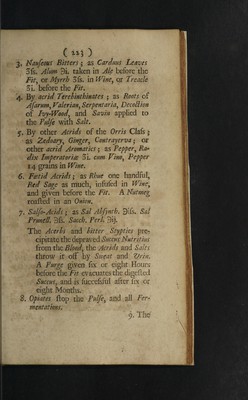 ( 223 )
3. Nauseous Bitters; as Carduus Leaves
ʒſs. Alum ℈i. taken in Ale before the
Fit, or Myrrh ʒſs. in Wine, or Treacle
ʒi. before the Fit.
4. By acrid Terebinthinates; as Roots of
Aſarum, Valerian, Serpentaria, Decoction
of Ivy-Wood, and Savin applied to
the Pulſe with Salt.
5. By other Acrids of the Orris Claſs;
as Zedoary, Ginger, Contrayerva; or
other acrid Aromatics; as Pepper, Ra-
dix Imperatoriæ ʒi. cum Vino, Pepper
14 grains in Wine.
6. Fœtid Acrids; as Rhue one handful,
Red Sage as much, infuſed in Wine,
and given before the Fit. A Nutmeg
roaſted in an Onion.
7. Salſo-Acids; as Sal Abſynth. ℈iſs. Sal
Prunell. ℈ſs. Sacch. Perl. ℈ij.
The Acerbs and bitter Styptics pre-
cipitate the depraved Succus Nutritius
from the Blood, the Acrids and Salts
throw it off by Sweat and Urin.
A Purge given ſix or eight Hours
before the Fit evacuates the digeſted
Succus, and is ſucceſsful after ſix or
eight Months.
8. Opiates ſtop the Pulſe, and all Fer-
mentations.
9. The